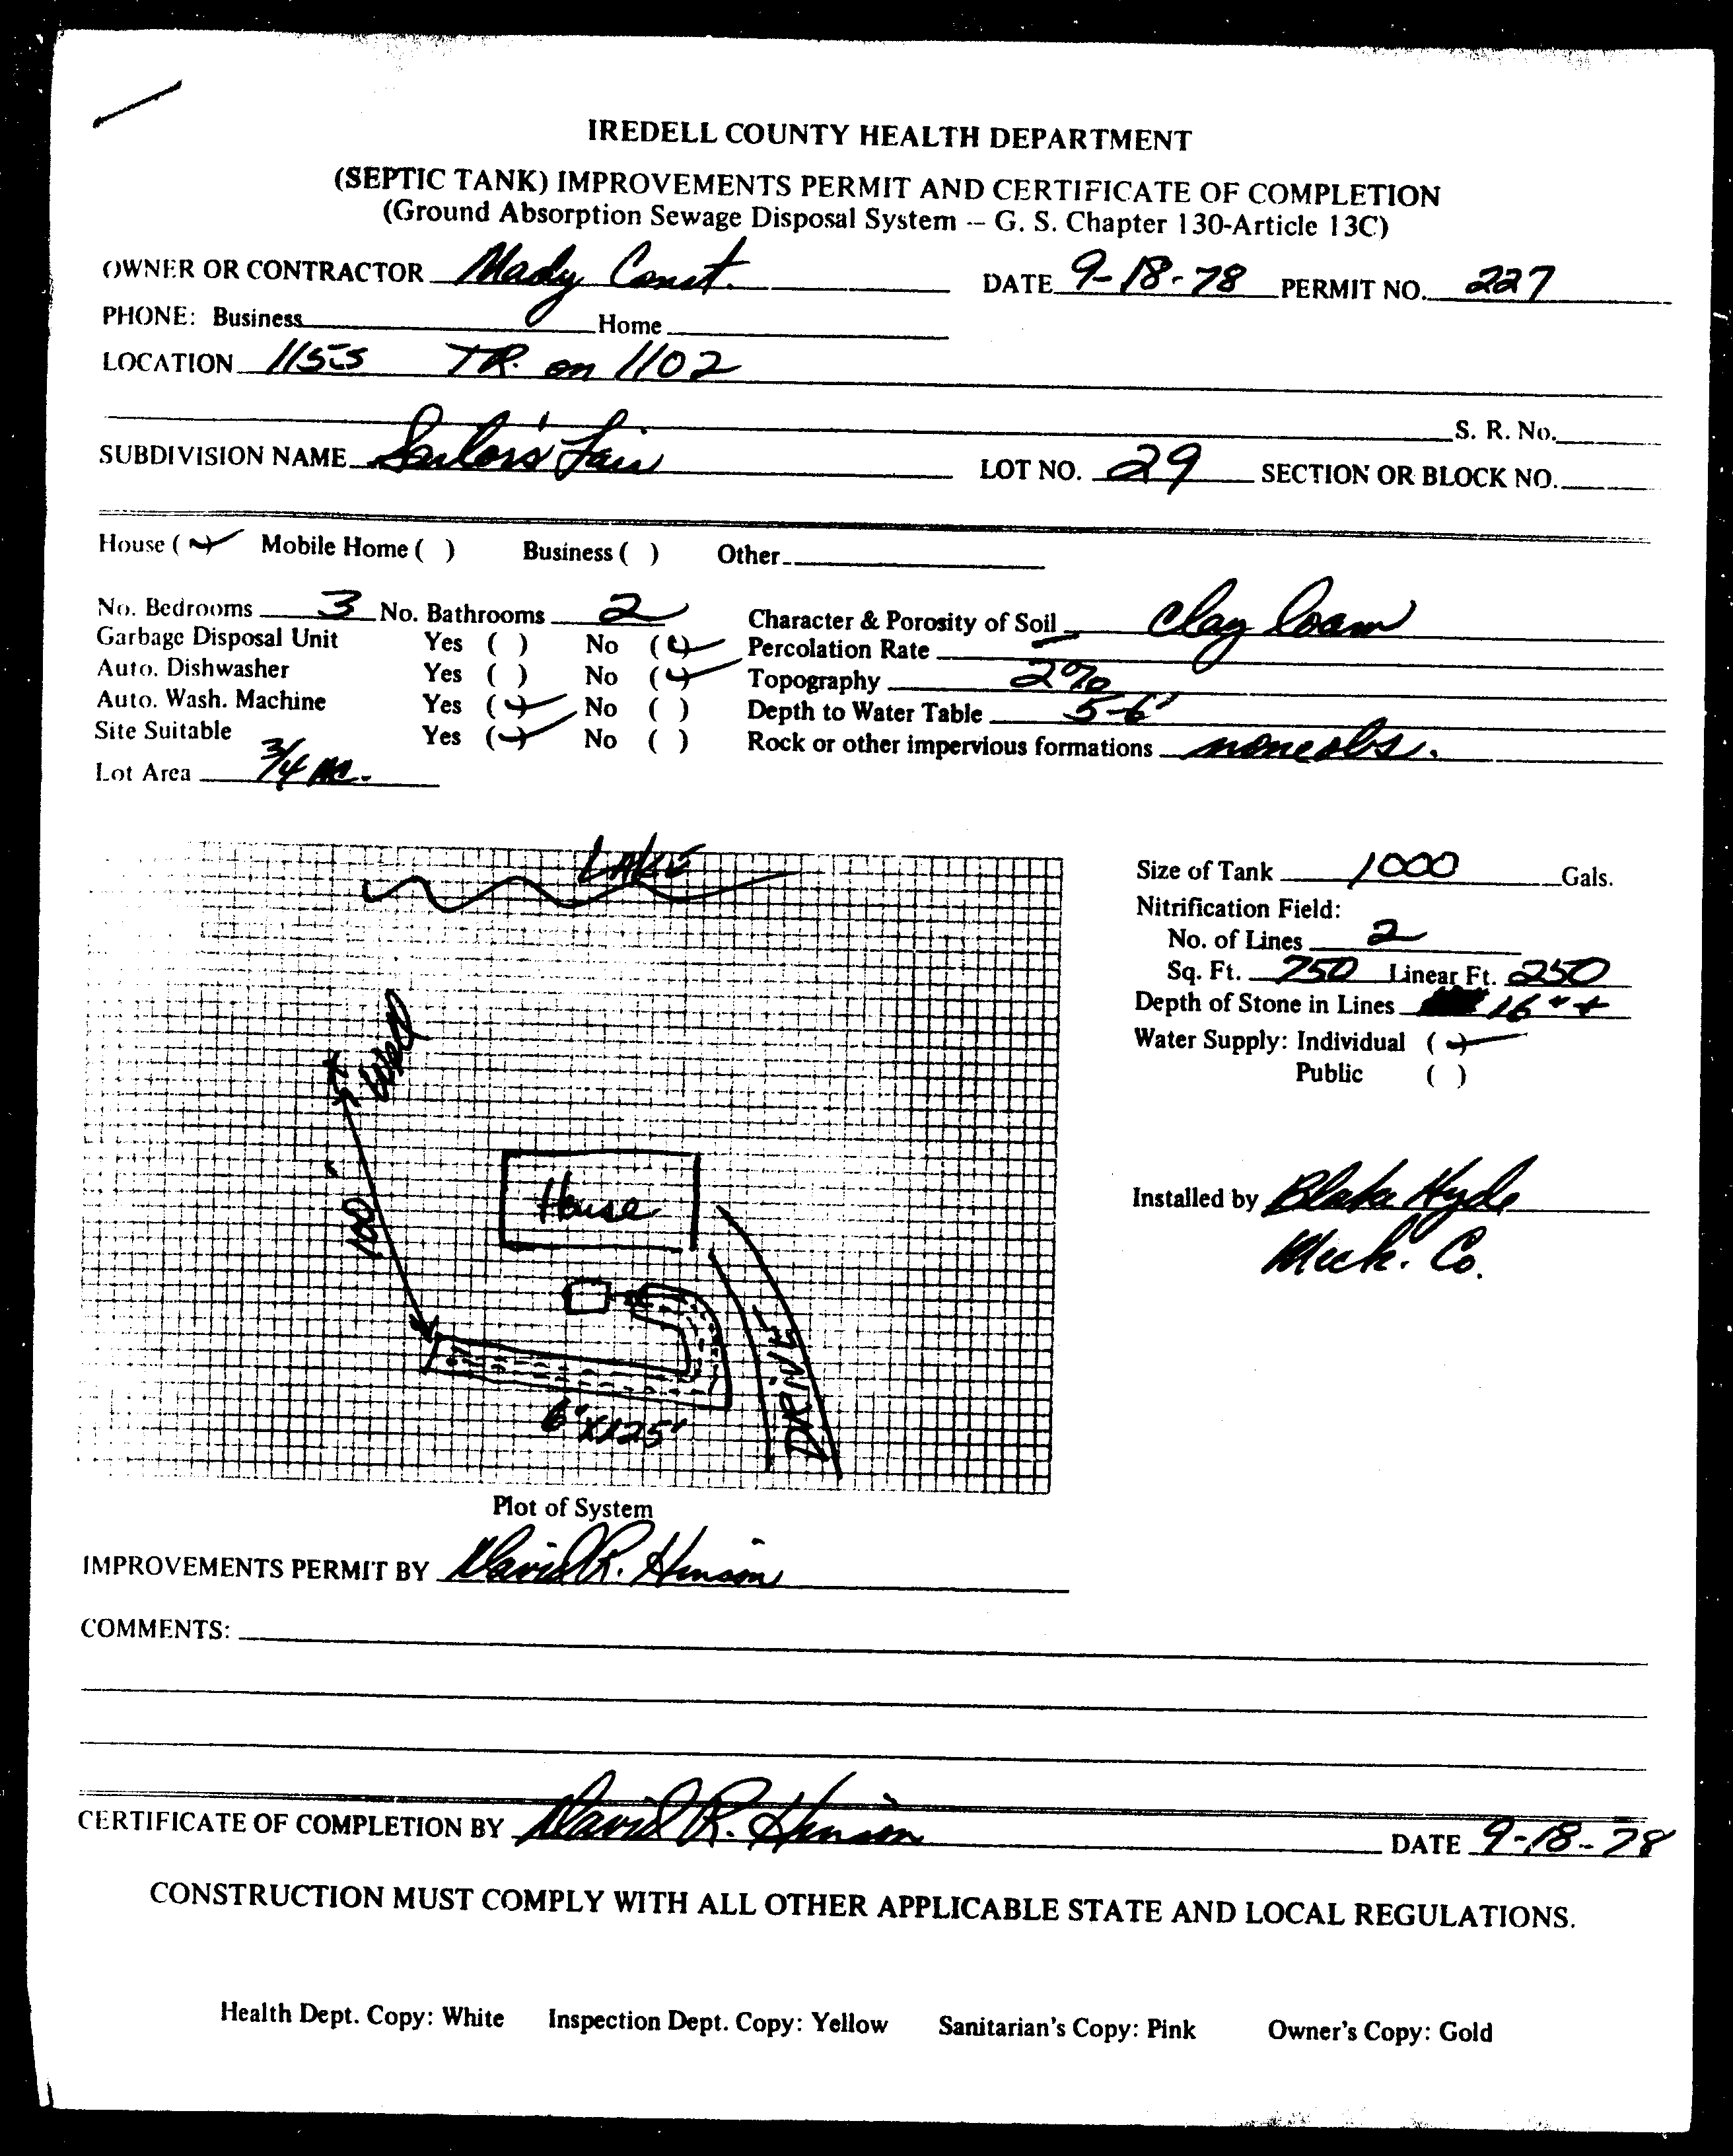 IREDELL COUNTY HEALTH DEPARTMENT
(SEPTIC TANK) IMPROVEMENTS PERMIT AND CERTIFICATE OF COMPLETION
(Ground Absorption Sewage Disposal System -- G. S. Chapter 130-Article 13C)
OWNER OR CONTRACTOR Mady Const. DATE 9-18-78 PERMIT NO. 227
PHONE: Business Home
LOCATION 1155 TR. on 1102
S. R. No.
SUBDIVISION NAME Sailor's Lair LOT NO. 29 SECTION OR BLOCK NO.
House ( ) Mobile Home ( ) Business ( ) Other
No. Bedrooms 3 No. Bathrooms 2 Character & Porosity of Soil Clay loam
Garbage Disposal Unit Yes ( ) No ( ) Percolation Rate
Auto. Dishwasher Yes ( ) No ( ) Topography 2%
Auto. Wash. Machine Yes ( ) No ( ) Depth to Water Table 5-6'
Site Suitable Yes ( ) No ( ) Rock or other impervious formations none obs.
Lot Area 3/4
LAKE
Size of Tank 1000 Gals.
Nitrification Field:
No. of Lines 2
Sq. Ft. 750 Linear Ft. 250
Depth of Stone in Lines 16" +
Water Supply: Individual ( )
Public ( )
Well
100'
House
DRIVE
6'X125'
Installed by Blake Hyde
Meck. Co.
Plot of System
IMPROVEMENTS PERMIT BY David R. Hinson
COMMENTS:
CERTIFICATE OF COMPLETION BY David R. Hinson DATE 9-18-78
CONSTRUCTION MUST COMPLY WITH ALL OTHER APPLICABLE STATE AND LOCAL REGULATIONS.
Health Dept. Copy: White Inspection Dept. Copy: Yellow Sanitarian's Copy: Pink Owner's Copy: Gold